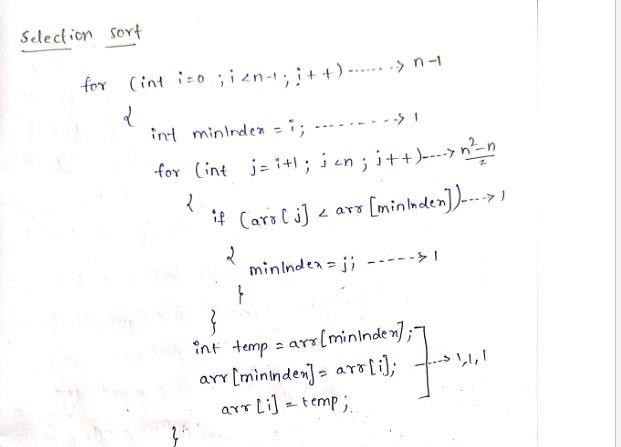 Selection sort
for (int i=0 ; i<n-1; i++) ------> n-1
{
int minIndex = i; ---------> 1
for (int j=i+1; j<n; j++)----> n²-n/2
{
if (arr[j] < arr[minIndex])----> 1
{
minIndex = j; -----> 1
}
}
int temp = arr[minIndex];
arr[minIndex] = arr[i]; ---> 1,1,1
arr[i] = temp;
}